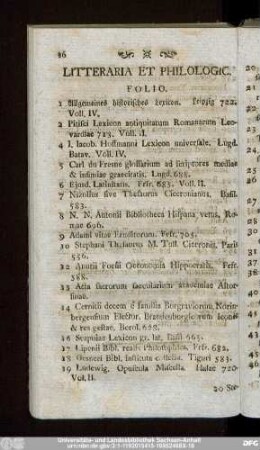 16
LITTERARIA ET PHILOLOGIC.
FOLIO.
1 Allgemeines historisches Lexicon. Leipzig 722.
Voll. IV.
2 Pitisci Lexicon antiquitatum Romanarum Leo-
vardiae 713. Voll. II.
4 I. Iacob. Hoffmanni Lexicon universale. Lugd.
Batav. Voll. IV.
5 Carl du Fresne glossarium ad scriptores mediae
& infimiae graecitatis. Lugd. 688.
6 Ejusd. Latinitatis. Frfr. 683. Voll. II.
7 Nizolius sive Thesaurus Ciceronianus. Basil.
583.
8 N. N. Antonii Bibliotheca Hispana vetus, Ro-
mae 696.
9 Adami vitae Eruditorum. Frfr. 705.
10 Stephani Thesaurus M. Tull. Ciceronis. Paris
556.
12 Anutii Foesii Oeconomia Hippocratis. Frfr.
588.
13 Acta sacrorum saecularium
14 Cernitii decem e familia Burgraviorum Nurin-
bergensium Elector. Brandenburgic. eum icones
& res gestae. Berol.
16 Scapulae Lexicon gr. lat. Basil 665.
17 Lipenii Bibl. realis Philosophica. Frfr. 682.
18 Gesneri Bibl. instituta & collecta. Tiguri 583.
19 Ludewig. Opuscula Miscella. Halae 720.
Vol. II.
20
Universitäts- und Landesbibliothek Sachsen-Anhalt